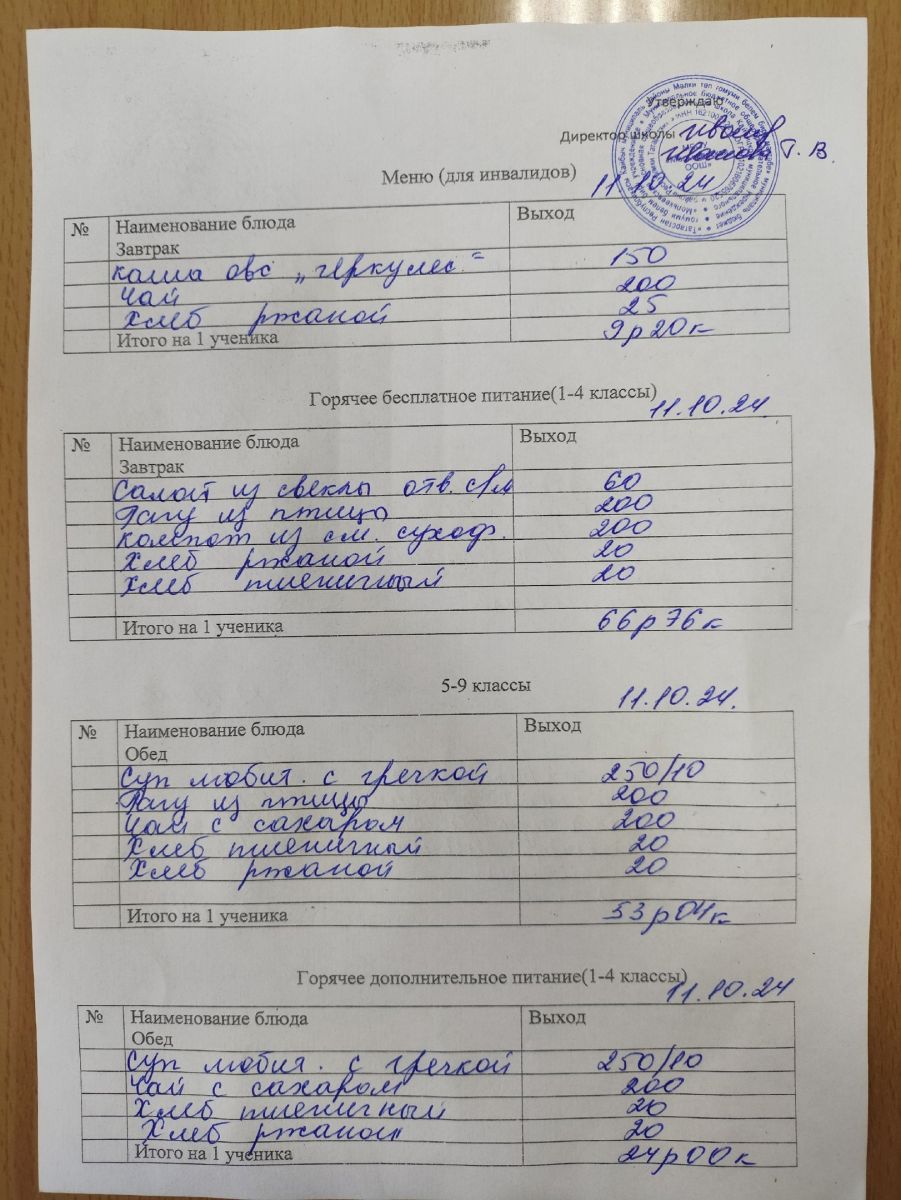 Утверждаю
Директор школы Иванова Т. В.
11.10.24
Меню (для инвалидов)
№ Наименование блюда Выход
Завтрак
Каша овс „геркулес" 150
Чай 200
Хлеб ржаной 25
Итого на 1 ученика 9р20к
Горячее бесплатное питание(1-4 классы)
11.10.24
№ Наименование блюда Выход
Завтрак
Салат из свеклы отв. с/м 60
Рагу из птицы 200
Компот из см. сухоф. 200
Хлеб ржаной 20
Хлеб пшеничный 20
Итого на 1 ученика 66р76к
5-9 классы
11.10.24.
№ Наименование блюда Выход
Обед
Суп любит. с гречкой 250/10
Рагу из птицы 200
Чай с сахаром 200
Хлеб пшеничный 20
Хлеб ржаной 20
Итого на 1 ученика 53р04к
Горячее дополнительное питание(1-4 классы)
11.10.24
№ Наименование блюда Выход
Обед
Суп любит. с гречкой 250/10
Чай с сахаром 200
Хлеб пшеничный 20
Хлеб ржаной 20
Итого на 1 ученика 24р00к